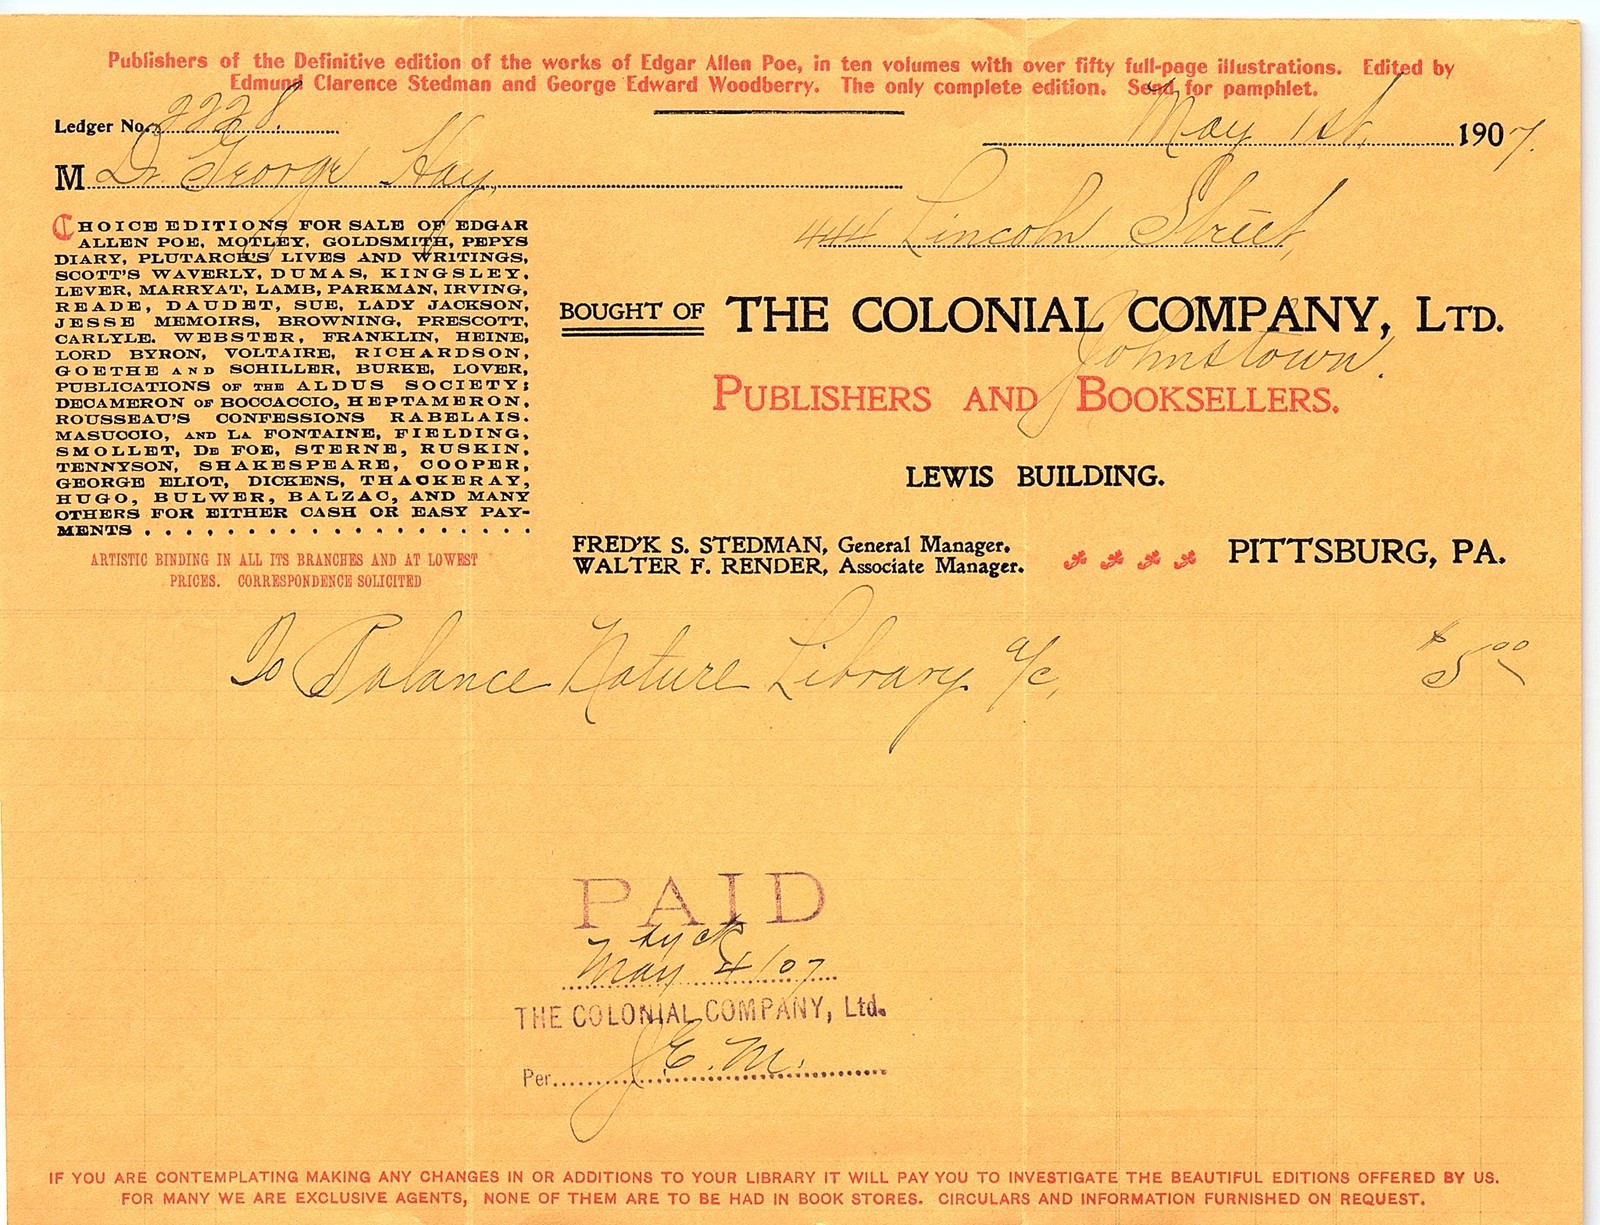 Publishers of the Definitive edition of the works of Edgar Allen Poe, in ten volumes with over fifty full-page illustrations. Edited by
Edmund Clarence Stedman and George Edward Woodberry. The only complete edition. Send for pamphlet.
Ledger No. 2228.
May 1st, 1907.
M Dr. George Hay,
444 Lincoln Street,
Johnstown.
CHOICE EDITIONS FOR SALE OF EDGAR
ALLEN POE, MOTLEY, GOLDSMITH, PEPYS
DIARY, PLUTARCH'S LIVES AND WRITINGS,
SCOTT'S WAVERLY, DUMAS, KINGSLEY,
LEVER, MARRYAT, LAMB, PARKMAN, IRVING,
READE, DAUDET, SUE, LADY JACKSON,
JESSE MEMOIRS, BROWNING, PRESCOTT,
CARLYLE. WEBSTER, FRANKLIN, HEINE,
LORD BYRON, VOLTAIRE, RICHARDSON,
GOETHE AND SCHILLER, BURKE, LOVER,
PUBLICATIONS OF THE ALDUS SOCIETY;
DECAMERON OF BOCCACCIO, HEPTAMERON,
ROUSSEAU'S CONFESSIONS RABELAIS.
MASUCCIO, AND LA FONTAINE, FIELDING,
SMOLLET, DE FOE, STERNE, RUSKIN,
TENNYSON, SHAKESPEARE, COOPER,
GEORGE ELIOT, DICKENS, THACKERAY,
HUGO, BULWER, BALZAC, AND MANY
OTHERS FOR EITHER CASH OR EASY PAY-
MENTS . . . . . . . . . . . . . . . . . . .
ARTISTIC BINDING IN ALL ITS BRANCHES AND AT LOWEST
PRICES. CORRESPONDENCE SOLICITED
BOUGHT OF THE COLONIAL COMPANY, LTD.
PUBLISHERS AND BOOKSELLERS.
LEWIS BUILDING.
FRED'K S. STEDMAN, General Manager.
WALTER F. RENDER, Associate Manager.
PITTSBURG, PA.
To Balance Nature Library a/c, $5.00
PAID
by ck
May 4/07
THE COLONIAL COMPANY, Ltd.
Per J.E.M.
IF YOU ARE CONTEMPLATING MAKING ANY CHANGES IN OR ADDITIONS TO YOUR LIBRARY IT WILL PAY YOU TO INVESTIGATE THE BEAUTIFUL EDITIONS OFFERED BY US.
FOR MANY WE ARE EXCLUSIVE AGENTS, NONE OF THEM ARE TO BE HAD IN BOOK STORES. CIRCULARS AND INFORMATION FURNISHED ON REQUEST.